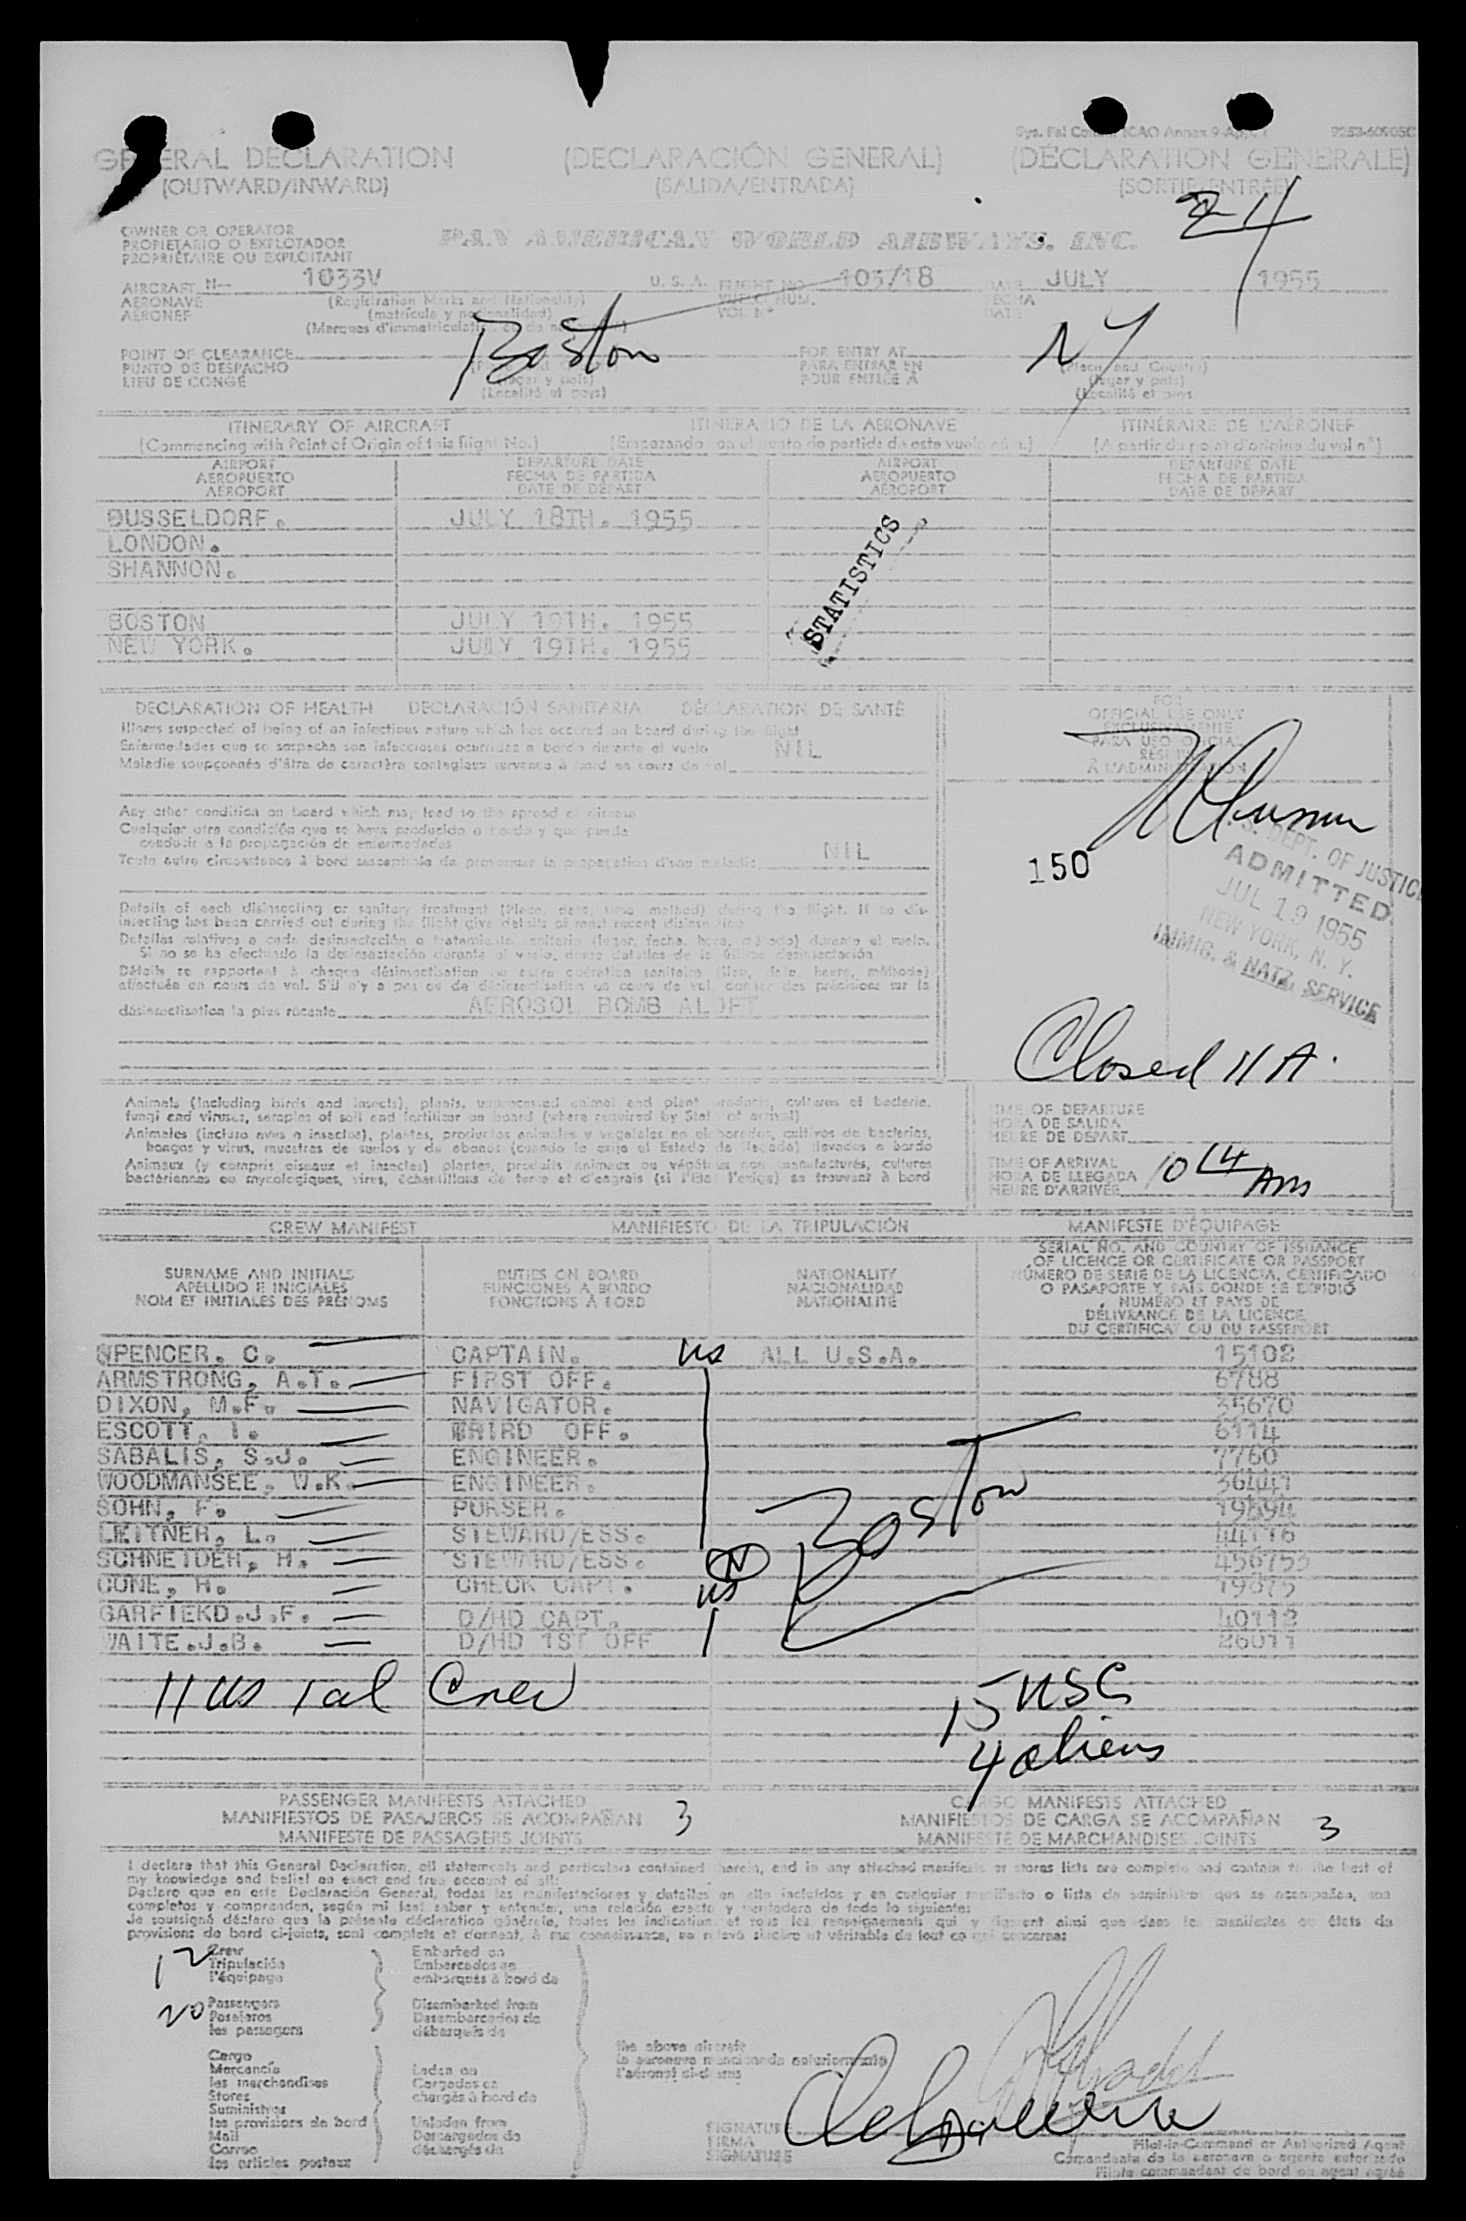 Annex 9-App. 1
GENERAL DECLARATION (DECLARACIÓN GENERAL) (DÉCLARATION GÉNÉRALE)
(OUTWARD/INWARD) (SALIDA/ENTRADA) (SORTIE/ENTRÉE)
24
OWNER OR OPERATOR
PROPIETARIO O EXPLOTADOR
PROPRIÉTAIRE OU EXPLOITANT
PAN AMERICAN WORLD AIRWAYS, INC.
AIRCRAFT N— 1033V U. S. A. FLIGHT NO. 103/18 DATE JULY 1955
AERONAVE (Registration Marks and Nationality) VUELO NUM. FECHA
AÉRONEF (matrícula y nacionalidad) VOL Nº DATE
POINT OF CLEARANCE Boston FOR ENTRY AT NY
PUNTO DE DESPACHO PARA ENTRAR EN (Place and Country)
LIEU DE CONGÉ POUR ENTRÉE À (lugar y país)
(Localité et pays) (Localité et pays
ITINERARY OF AIRCRAFT ITINERARIO DE LA AERONAVE ITINÉRAIRE DE L'AÉRONEF
(Commencing with Point of Origin of this flight No.) (Empezando con el punto de partida de este vuelo núm.) (A partir du point d'origine du vol nº)
AIRPORT DEPARTURE DATE AIRPORT DEPARTURE DATE
AEROPUERTO FECHA DE PARTIDA AEROPUERTO FECHA DE PARTIDA
AÉROPORT DATE DE DÉPART AÉROPORT DATE DE DÉPART
DUSSELDORF. JULY 18TH. 1955
LONDON.
SHANNON.
STATISTICS
BOSTON JULY 19TH. 1955
NEW YORK. JULY 19TH. 1955
DECLARATION OF HEALTH DECLARACIÓN SANITARIA DÉCLARATION DE SANTÉ
FOR
OFFICIAL USE ONLY
EXCLUSIVAMENTE
PARA USO OFICIAL
RÉSERVÉ
À L'ADMINISTRATION
Illness suspected of being of an infectious nature which has occured on board during the flight
Enfermedades que se sospecha son infecciosas ocurridas a bordo durante el vuelo NIL
Maladie soupçonnée d'être de caractère contagieux survenue à bord en cours de vol
Any other condition on board which may lead to the spread of disease
Cualquier otra condición que se haya producido a bordo y que pueda
conducir a la propagación de enfermedades
Toute autre circonstance à bord susceptible de provoquer la propagation d'une maladie NIL
150
U.S. DEPT. OF JUSTICE
ADMITTED
JUL 19 1955
NEW YORK, N. Y.
IMMIG. & NATZ. SERVICE
Details of each disinsecting or sanitary treatment (Place, date, time, method) during the flight. If no dis-
insecting has been carried out during the flight give details of most recent disinsecting
Detalles relativos a cada desinsectación o tratamiento sanitario (lugar, fecha, hora, método) durante el vuelo.
Si no se ha efectuado la desinsectación durante el vuelo, dense detalles de la última desinsectación
Détails se rapportant à chaque désinsectisation ou autre opération sanitaire (lieu, date, heure, méthode)
effectuée en cours de vol. S'il n'y a pas eu de désinsectisation en cours de vol, donner des précisions sur la
désinsectisation la plus récente AEROSOL BOMB ALOFT
Closed 11 A.
Animals (including birds and insects), plants, unprocessed animal and plant products, cultures of bacteria,
fungi and viruses, samples of soil and fertilizer on board (where required by State of arrival)
Animales (incluso aves e insectos), plantas, productos animales y vegetales no elaborados, cultivos de bacterias,
hongos y virus, muestras de suelos y de abonos (cuando lo exija el Estado de llegada) llevados a bordo
Animaux (y compris oiseaux et insectes) plantes, produits animaux ou végétaux non manufacturés, cultures
bactériennes ou mycologiques, virus, échantillons de terre et d'engrais (si l'État l'exige) se trouvant à bord
TIME OF DEPARTURE
HORA DE SALIDA
HEURE DE DÉPART
TIME OF ARRIVAL
HORA DE LLEGADA 10 14 Am
HEURE D'ARRIVÉE
CREW MANIFEST MANIFIESTO DE LA TRIPULACIÓN MANIFESTE D'ÉQUIPAGE
SURNAME AND INITIALS DUTIES ON BOARD NATIONALITY
APELLIDO E INICIALES FUNCIONES A BORDO NACIONALIDAD
NOM ET INITIALES DES PRÉNOMS FONCTIONS À BORD NATIONALITÉ
SERIAL NO. AND COUNTRY OF ISSUANCE
OF LICENCE OR CERTIFICATE OR PASSPORT
NÚMERO DE SERIE DE LA LICENCIA, CERTIFICADO
O PASAPORTE Y PAÍS DONDE SE EXPIDIÓ
NUMÉRO ET PAYS DE
DÉLIVRANCE DE LA LICENCE
DU CERTIFICAT OU DU PASSEPORT
SPENCER. C. CAPTAIN. us ALL U.S.A. 15102
ARMSTRONG, A.T. FIRST OFF. 6788
DIXON, M.F. NAVIGATOR. 35670
ESCOTT, I. THIRD OFF. 6114
SABALIS, S.J. ENGINEER. 7760
WOODMANSEE, W.K. ENGINEER. 36441
SOHN, F. PURSER. 19494
LEITNER, L. STEWARD/ESS. 44116
SCHNEIDER, H. STEWARD/ESS. 456753
CONE, H. CHECK CAPT. us 19875
GARFIEKD.J.F. D/HD CAPT. 40112
WAITE.J.B. D/HD 1ST OFF 26011
Boston
11 us 1 al Crew
15 USC
4 aliens
PASSENGER MANIFESTS ATTACHED CARGO MANIFESTS ATTACHED
MANIFIESTOS DE PASAJEROS SE ACOMPAÑAN 3 MANIFIESTOS DE CARGA SE ACOMPAÑAN 3
MANIFESTE DE PASSAGERS JOINTS MANIFESTE DE MARCHANDISES JOINTS
I declare that this General Declaration, all statements and particulars contained herein, and in any attached manifests or stores lists are complete and contain to the best of
my knowledge and belief an exact and true account of all:
Declaro que en esta Declaración General, todas las manifestaciones y detalles en ella incluidos y en cualquier manifiesto o lista de suministros que se acompañan, son
completos y comprenden, según mi leal saber y entender, una relación exacta y verdadera de todo lo siguiente:
Je soussigné déclare que la présente déclaration générale, toutes les indications et tous les renseignements qui y figurent ainsi que dans les manifestes ou états de
provisions de bord ci-joints, sont complets et donnent, à ma connaissance, un relevé sincère et véritable de tout ce qui concerne:
12 Crew Embarked on
Tripulación Embarcados en
l'équipage embarqués à bord de
20 Passengers Disembarked from
Pasajeros Desembarcados de
les passagers débarqués de
Cargo
Mercancía Laden on
les marchandises Cargados en
Stores chargés à bord de
Suministros
les provisions de bord Unladen from
Mail Descargados de
Correo déchargés de
les articles postaux
the above aircraft
la aeronave mencionada anteriormente
l'aéronef ci-dessus
SIGNATURE
FIRMA
SIGNATURE
Pilot-in-Command or Authorized Agent
Comandante de la aeronave o agente autorizado
Pilote commandant de bord ou agent agréé